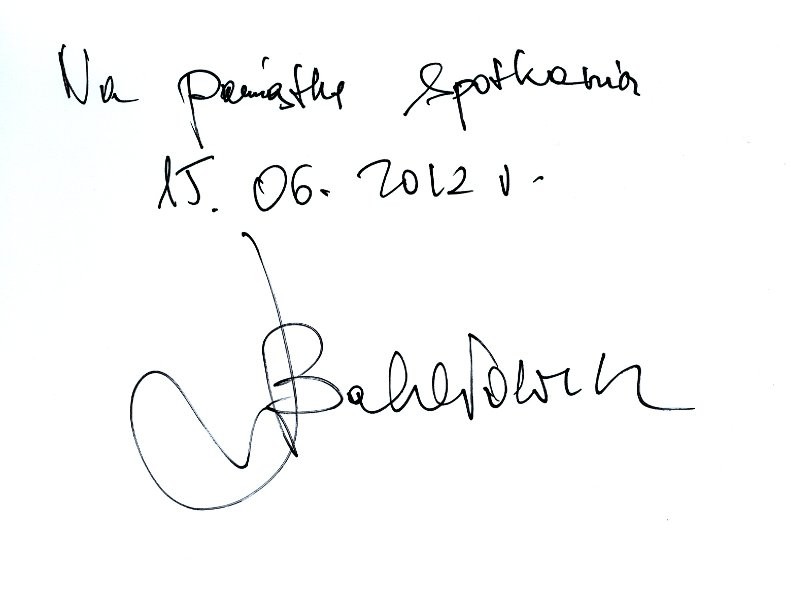 Na pamiątkę spotkania
15. 06. 2012 r.